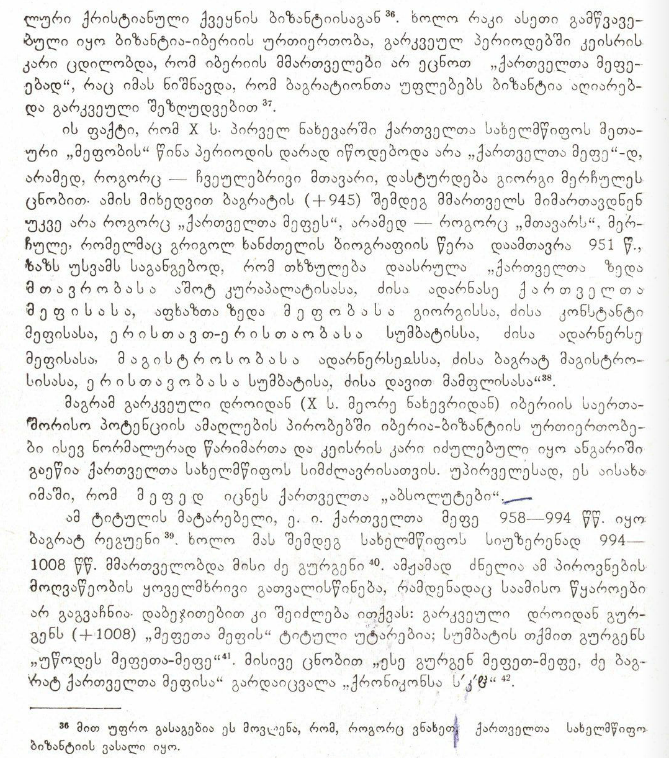 ლური ქრისტიანული ქვეყნის ბიზანტიისაგან ³⁶. ხოლო რაკი ასეთი გამწვავე-
ბული იყო ბიზანტია-იბერიის ურთიერთობა, გარკვეულ პერიოდებში კეისრის
კარი ცდილობდა, რომ იბერიის მმართველები არ ეცნოთ „ქართველთა მეფე-
ებად“, რაც იმას ნიშნავდა, რომ ბაგრატიონთა უფლებებს ბიზანტია აღიარებ-
და გარკვეული შეზღუდვებით ³⁷.
ის ფაქტი, რომ X ს. პირველ ნახევარში ქართველთა სახელმწიფოს მეთა-
ური „მეფობის“ წინა პერიოდის დარად იწოდებოდა არა „ქართველთა მეფე“-დ,
არამედ, როგორც — ჩვეულებრივი მთავარი, დასტურდება გიორგი მერჩულეს
ცნობით. ამის მიხედვით ბაგრატის (+945) შემდეგ მმართველს მიმართავდნენ
უკვე არა როგორც „ქართველთა მეფეს“, არამედ — როგორც „მთავარს“, მერ-
ჩულე, რომელმაც გრიგოლ ხანძთელის ბიოგრაფიის წერა დაამთავრა 951 წ.,
ხაზს უსვამს საგანგებოდ, რომ თხზულება დაასრულა „ქართველთა ზედა
მთავრობასა აშოტ კურაპალატისასა, ძისა ადარნასე ქართველთა
მეფისასა, აფხაზთა ზედა მეფობასა გიორგისსა, ძისა კონსტანტი
მეფისასა, ერისთავთ-ერისთაობასა სუმბატისსა, ძისა ადარნერსე
მეფისასა, მაგისტროსობასა ადარნერსეჲსსა, ძისა ბაგრატ მაგისტრო-
სისასა, ერისთავობასა სუმბატისა, ძისა დავით მამფლისასა“³⁸.
მაგრამ გარკვეული დროიდან (X ს. მეორე ნახევრიდან) იბერიის საერთა-
შორისო პოტენციის ამაღლების პირობებში იბერია-ბიზანტიის ურთიერთობე-
ბი ისევ ნორმალურად წარიმართა და კეისრის კარი იძულებული იყო ანგარიში
გაეწია ქართველთა სახელმწიფოს სიმძლავრისათვის. უპირველესად, ეს აისახა
იმაში, რომ მეფედ იცნეს ქართველთა „აბსოლუტები“.
ამ ტიტულის მატარებელი, ე. ი. ქართველთა მეფე 958—994 წწ. იყო
ბაგრატ რეგუენი ³⁹. ხოლო მას შემდეგ სახელმწიფოს სიუზერენად 994—
1008 წწ. მმართველობდა მისი ძე გურგენი ⁴⁰. ამჟამად ძნელია ამ პიროვნების
მოღვაწეობის ყოველმხრივი გათვალისწინება, რამდენადაც საამისო წყაროები
არ გაგვაჩნია. დაბეჯითებით კი შეიძლება ითქვას: გარკვეული დროიდან გურ-
გენს (+1008) „მეფეთა მეფის“ ტიტული უტარებია; სუმბატის თქმით გურგენს
„უწოდეს მეფეთა-მეფე“⁴¹. მისივე ცნობით „ესე გურგენ მეფეთ-მეფე, ძე ბაგ-
რატ ქართველთა მეფისა“ გარდაიცვალა „ქრონიკონსა ს′კ′ჱ“ ⁴².
³⁶ მით უფრო გასაგებია ეს მოვლენა, რომ, როგორც ვნახეთ, ქართველთა სახელმწიფო
ბიზანტიის ვასალი იყო.